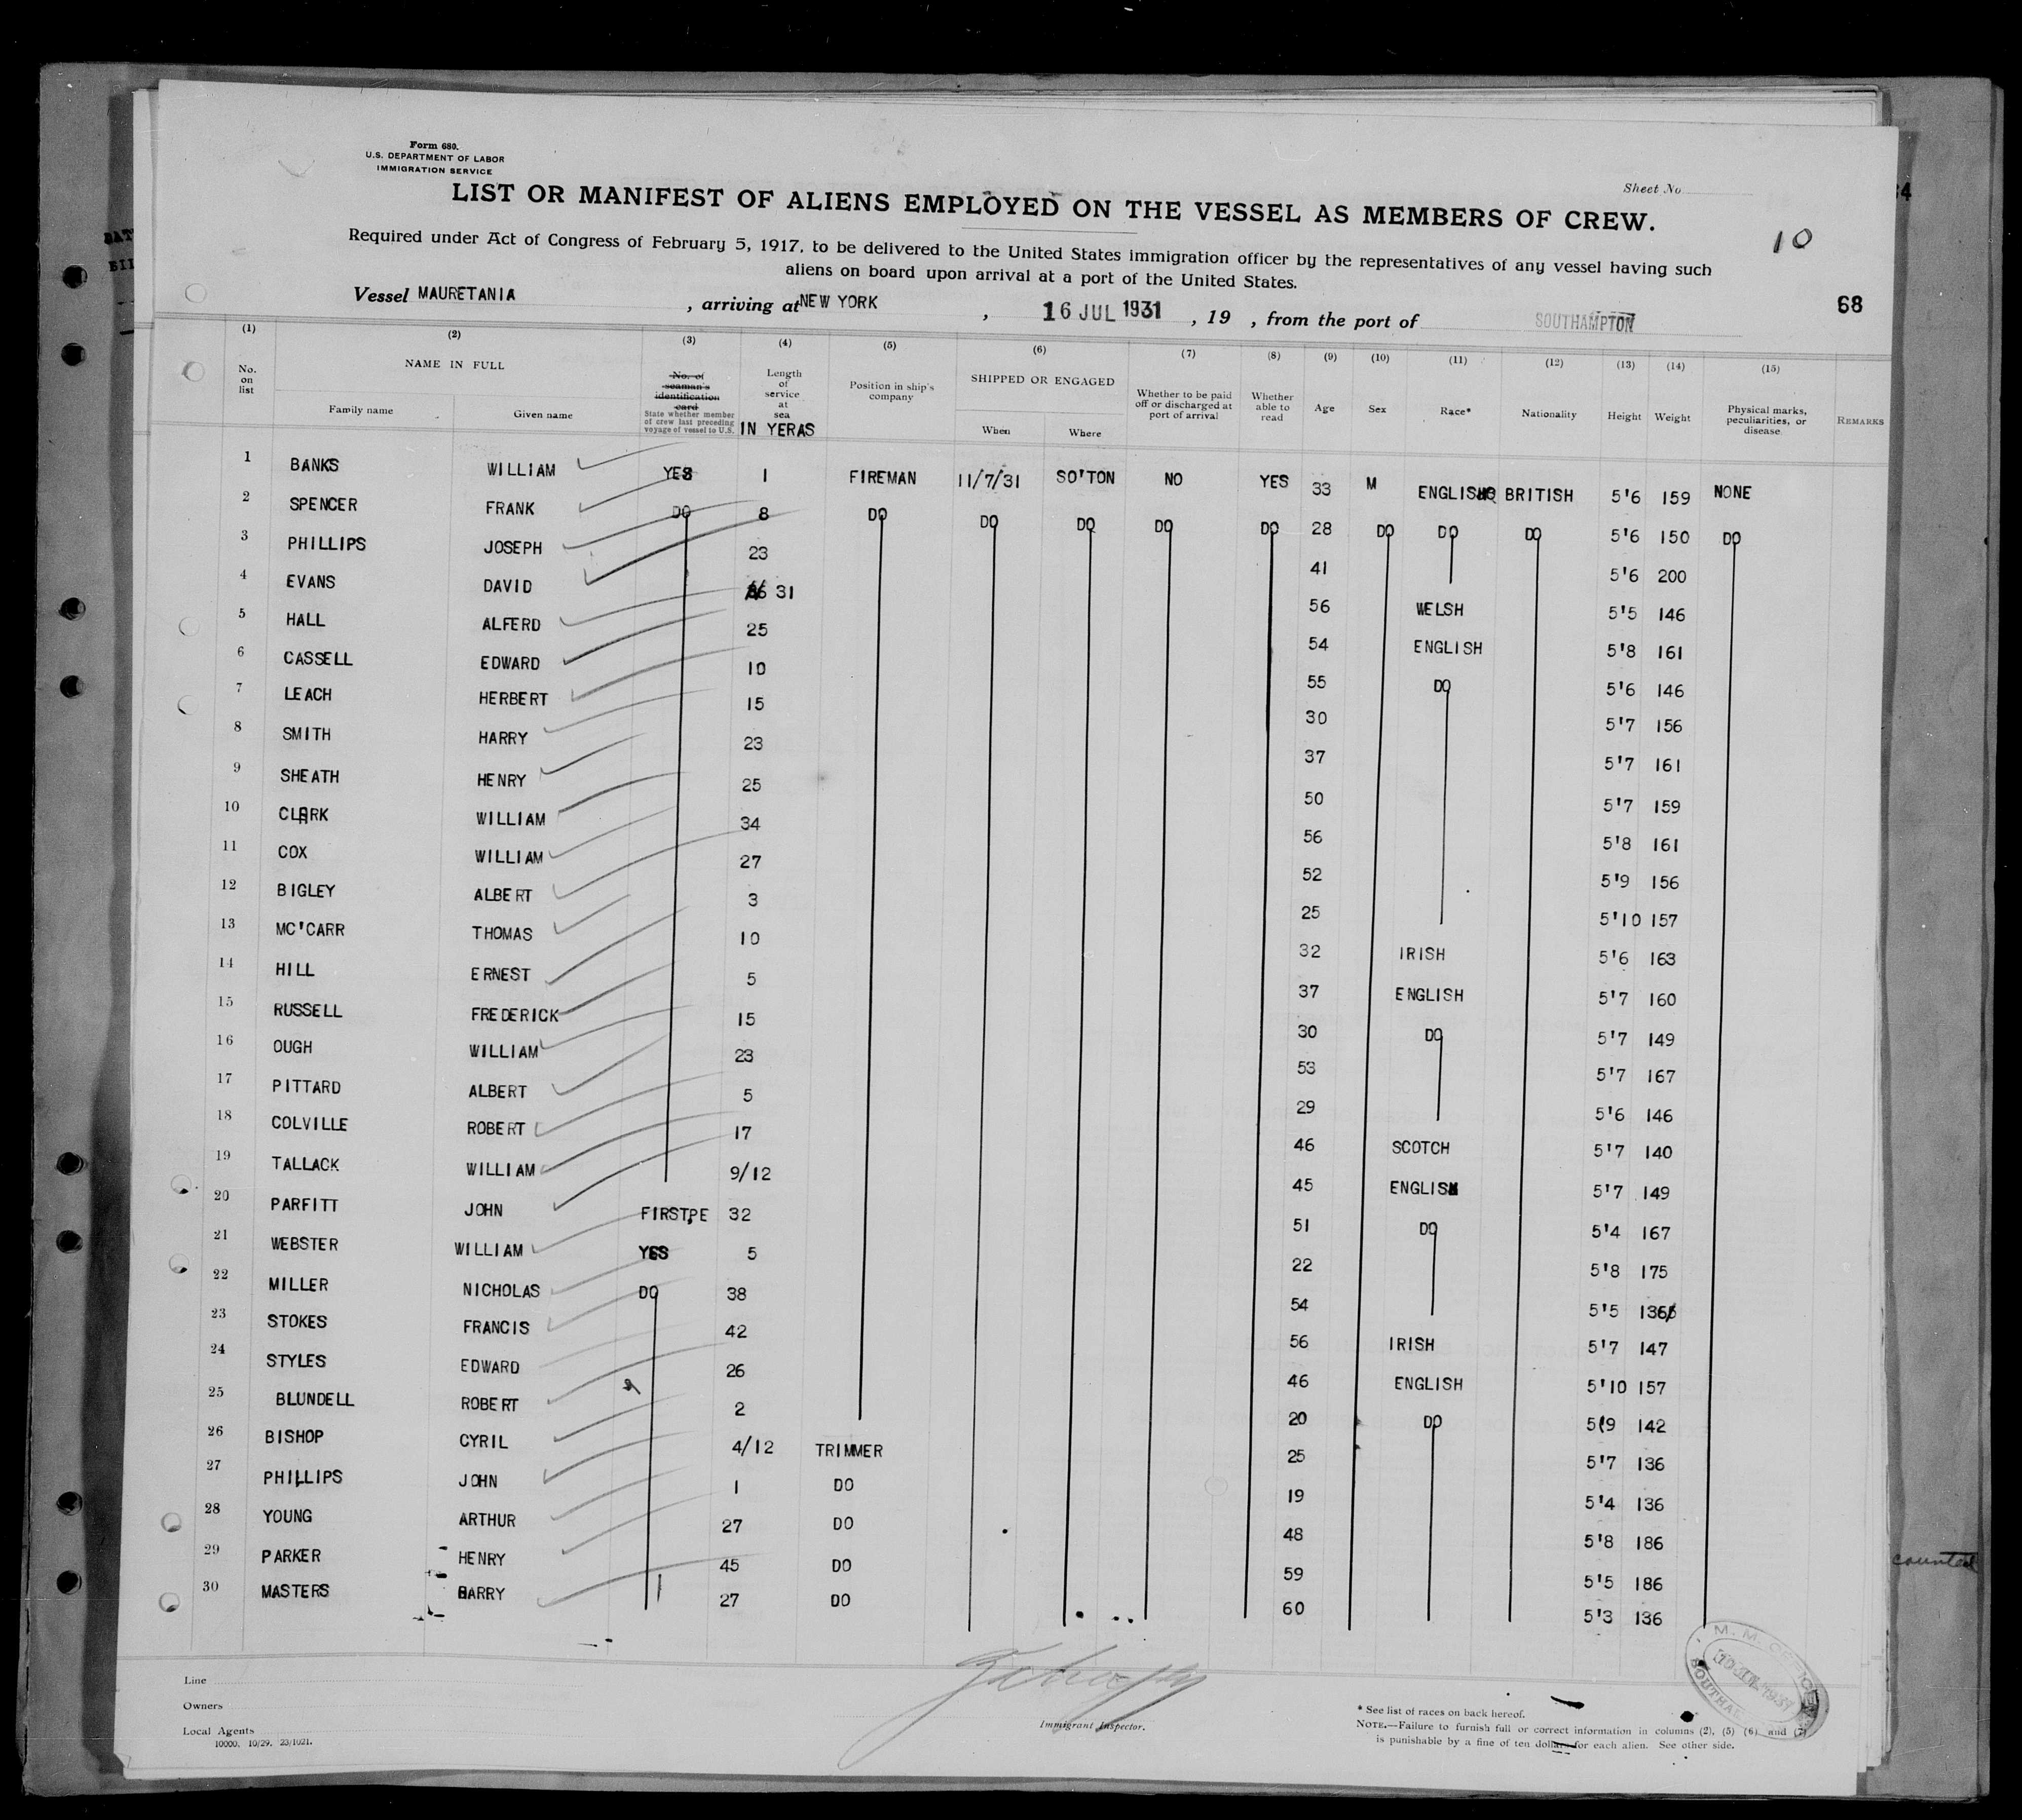 Form 680.
U.S. DEPARTMENT OF LABOR
IMMIGRATION SERVICE
Sheet No
LIST OR MANIFEST OF ALIENS EMPLOYED ON THE VESSEL AS MEMBERS OF CREW.
10
Required under Act of Congress of February 5, 1917, to be delivered to the United States immigration officer by the representatives of any vessel having such
aliens on board upon arrival at a port of the United States.
68
Vessel MAURETANIA, arriving at NEW YORK, 16 JUL 1931, 19 , from the port of SOUTHAMPTON
(1) (2) (3) (4) (5) (6) (7) (8) (9) (10) (11) (12) (13) (14) (15)
No. on list NAME IN FULL Family name Given name No. of seaman's identification card State whether member of crew last preceding voyage of vessel to U.S. Length of service at sea IN YERAS Position in ship's company SHIPPED OR ENGAGED When Where Whether to be paid off or discharged at port of arrival Whether able to read Age Sex Race* Nationality Height Weight Physical marks, peculiarities, or disease REMARKS
1 BANKS WILLIAM YES 1 FIREMAN 11/7/31 SO'TON NO YES 33 M ENGLISH BRITISH 5'6 159 NONE
2 SPENCER FRANK DO 8 DO DO DO DO DO 28 DO DO DO 5'6 150 DO
3 PHILLIPS JOSEPH 23 41 5'6 200
4 EVANS DAVID 31 56 WELSH 5'5 146
5 HALL ALFERD 25 54 ENGLISH 5'8 161
6 CASSELL EDWARD 10 55 DO 5'6 146
7 LEACH HERBERT 15 30 5'7 156
8 SMITH HARRY 23 37 5'7 161
9 SHEATH HENRY 25 50 5'7 159
10 CLARK WILLIAM 34 56 5'8 161
11 COX WILLIAM 27 52 5'9 156
12 BIGLEY ALBERT 3 25 5'10 157
13 MC'CARR THOMAS 10 32 IRISH 5'6 163
14 HILL ERNEST 5 37 ENGLISH 5'7 160
15 RUSSELL FREDERICK 15 30 DO 5'7 149
16 OUGH WILLIAM 23 53 5'7 167
17 PITTARD ALBERT 5 29 5'6 146
18 COLVILLE ROBERT 17 46 SCOTCH 5'7 140
19 TALLACK WILLIAM 9/12 45 ENGLISH 5'7 149
20 PARFITT JOHN FIRST,PE 32 51 DO 5'4 167
21 WEBSTER WILLIAM YES 5 22 5'8 175
22 MILLER NICHOLAS DO 38 54 5'5 136
23 STOKES FRANCIS 42 56 IRISH 5'7 147
24 STYLES EDWARD 26 46 ENGLISH 5'10 157
25 BLUNDELL ROBERT 2 20 DO 5(9 142
26 BISHOP CYRIL 4/12 TRIMMER 25 5'7 136
27 PHILLIPS JOHN 1 DO 19 5'4 136
28 YOUNG ARTHUR 27 DO 48 5'8 186
29 PARKER HENRY 45 DO 59 5'5 186
30 MASTERS HARRY 27 DO 60 5'3 136
counted
Line
Owners
Local Agents
10000. 10/29. 23/1021.
Immigrant Inspector.
* See list of races on back hereof.
NOTE.—Failure to furnish full or correct information in columns (2), (5) (6) and (7)
is punishable by a fine of ten dollars for each alien. See other side.